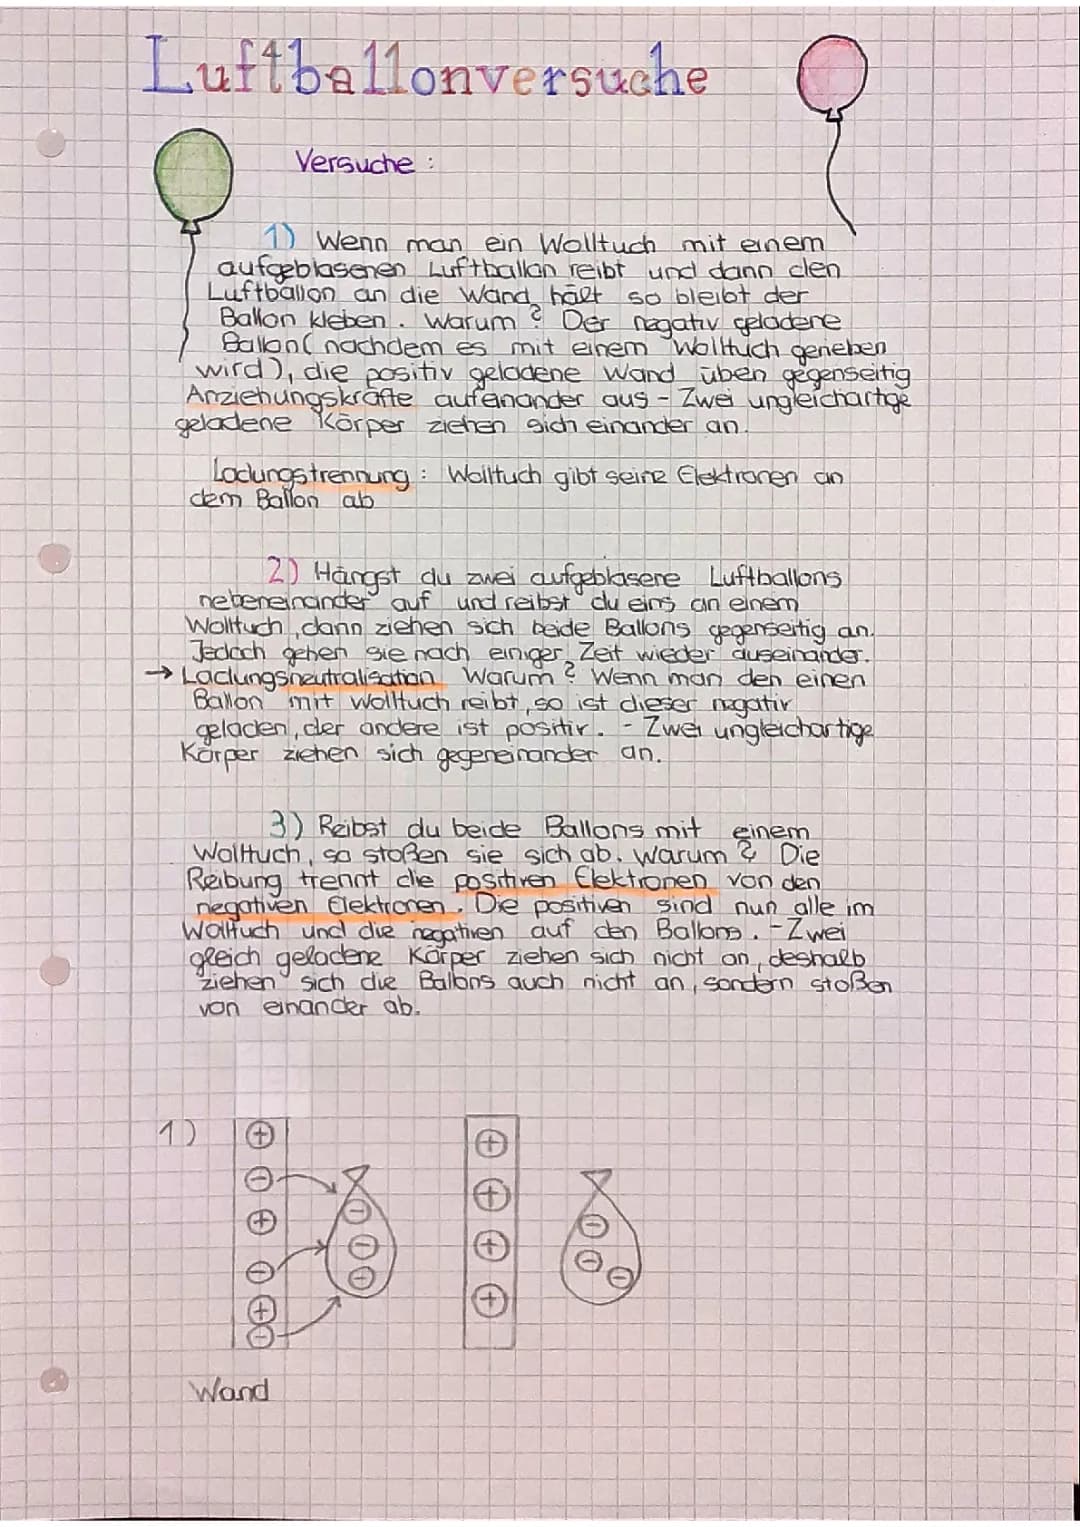 Luftballonversuche
Versuche :
1) Wenn man ein Wolltuch mit einem
aufgeblasenen Luftballon reibt und dann den
Luftballon an die Wand hält so bleibt der
Ballon kleben. Warum? Der negativ geladene
Ballon( nachdem es mit einem Wolltuch gerieben
wird), die positiv geladene Wand üben gegenseitig
Anziehungskräfte aufeinander aus - Zwei ungleichartige
geladene Körper ziehen sich einander an.
Ladungstrennung : Wolltuch gibt seine Elektronen an
dem Ballon ab
2) Hängst du zwei aufgeblasene Luftballons
nebeneinander auf und reibst du eins an einem
Wolltuch, dann ziehen sich beide Ballons gegenseitig an.
Jedoch gehen sie nach einiger Zeit wieder auseinander.
→ Ladungsneutralisation Warum? Wenn man den einen
Ballon mit Wolltuch reibt, so ist dieser negativ
geladen, der andere ist positiv. - Zwei ungleichartige
Körper ziehen sich gegeneinander an.
3) Reibst du beide Ballons mit einem
Wolltuch, so stoßen sie sich ab. Warum? Die
Reibung trennt die positiven Elektronen von den
negativen Elektronen. Die positiven sind nun alle im
Wolltuch und die negativen auf den Ballons. - Zwei
gleich geladene Körper ziehen sich nicht an, deshalb
ziehen sich die Ballons auch nicht an, sondern stoßen
von einander ab.
1)
+ +
-
- +
+ - -
- +
- - -
+ +
-
Wand